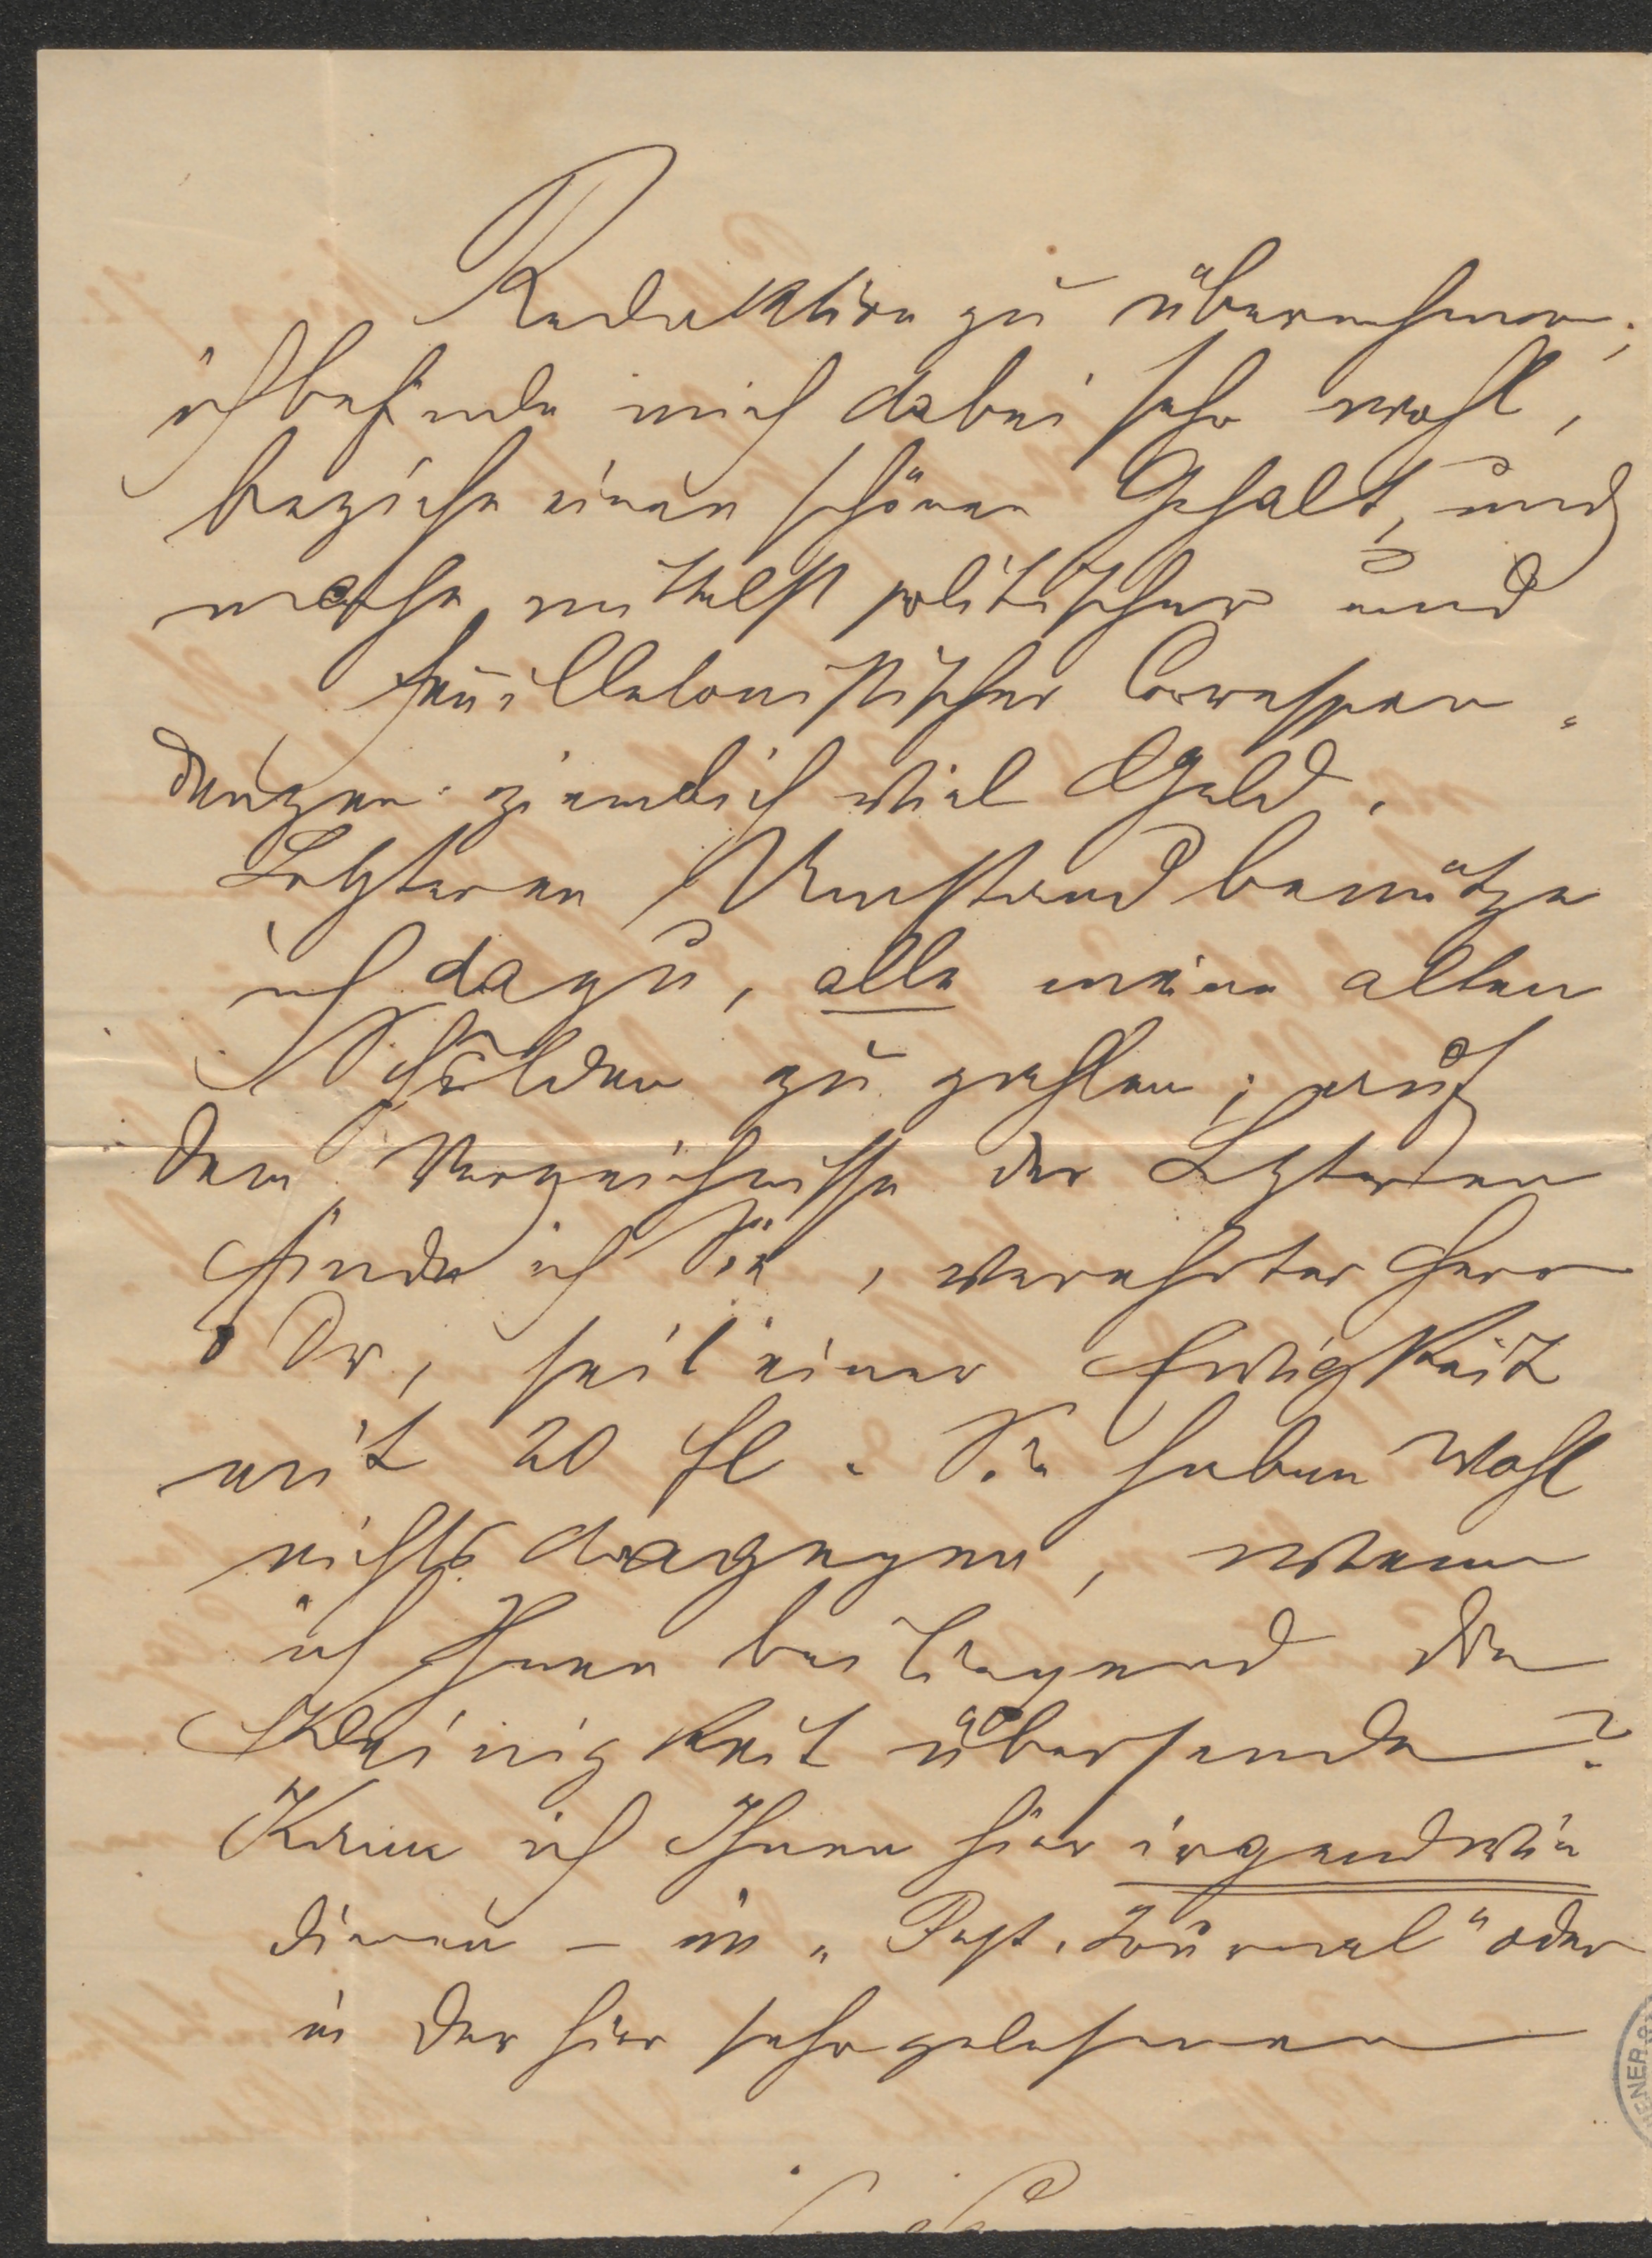 Redaktion zu übernehmen;
ich befinde mich dabei sehr wohl,
beziehe einen schönen Gehalt, und
mache mittelst politischer und
feuilletonistischer Correspon-
denzen ziemlich viel Geld.
Letzteren Umstand benütze
ich dazu, alle meine alten
Schulden zu zahlen; auf
dem Verzeichnisse der Letzteren
finde ich Sie, verehrter Herr
Dr, seit einer Ewigkeit
mit 20 fl. Sie haben wohl
nichts dagegen, wenn
ich Ihnen beiliegend die
Kleinigkeit übersende?
Kann ich Ihnen hier irgendwie
dienen – im „Pest. Journal" oder
in der hier sehr gelesenen